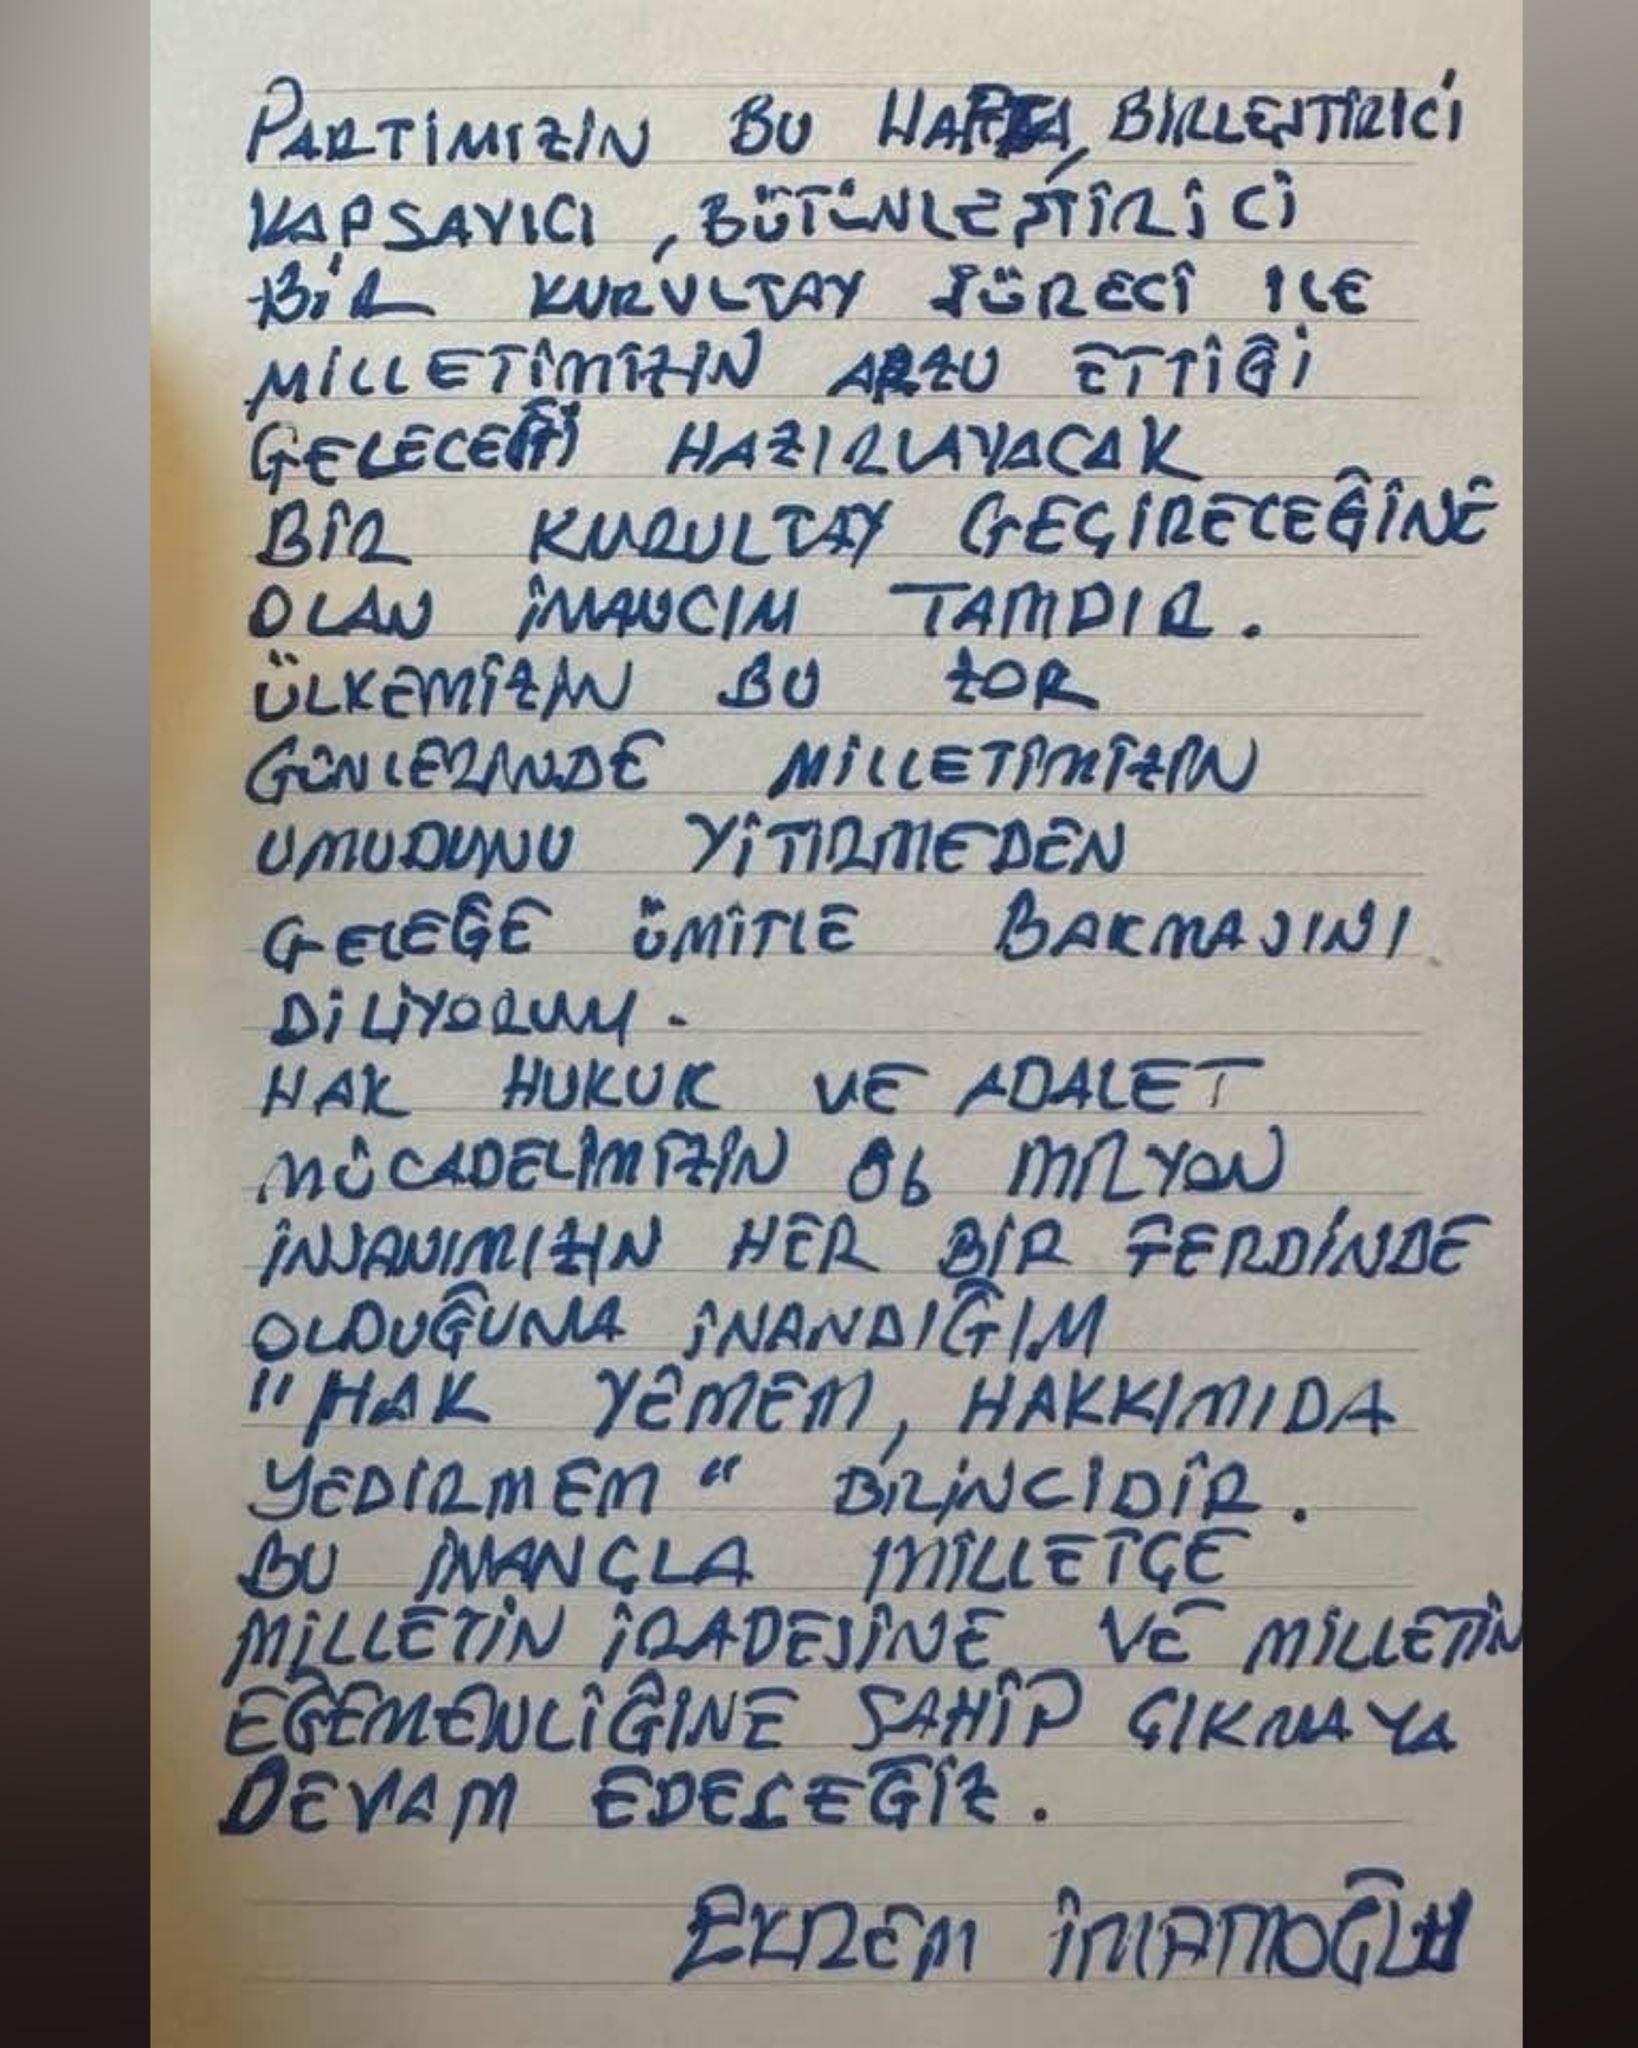 PARTİMİZİN BU HAFTA, BİRLEŞTİRİCİ
KAPSAYICI, BÜTÜNLEŞTİRİCİ
BİR KURULTAY SÜRECİ İLE
MİLLETİMİZİN ARZU ETTİĞİ
GELECEĞİ HAZIRLAYACAK
BİR KURULTAY GEÇİRECEĞİNE
OLAN İNANCIM TAMDIR.
ÜLKEMİZİN BU ZOR
GÜNLERİNDE MİLLETİMİZİN
UMUDUNU YİTİRMEDEN
GELEĞE ÜMİTLE BAKMASINI
DİLİYORUM.
HAK HUKUK VE ADALET
MÜCADELİMİZİN 86 MİLYON
İNSANIMIZIN HER BİR FERDİNDE
OLDUĞUNA İNANDIĞIM
"HAK YEMEM, HAKKIMIDA
YEDİRMEM" BİRİNCİDİR.
BU İNANÇLA MİLLETÇE
MİLLETİN İRADESİNE VE MİLLETİN
EGEMENLİĞİNE SAHİP ÇIKMAYA
DEVAM EDECEĞİZ.
EKREM İMAMOĞLU